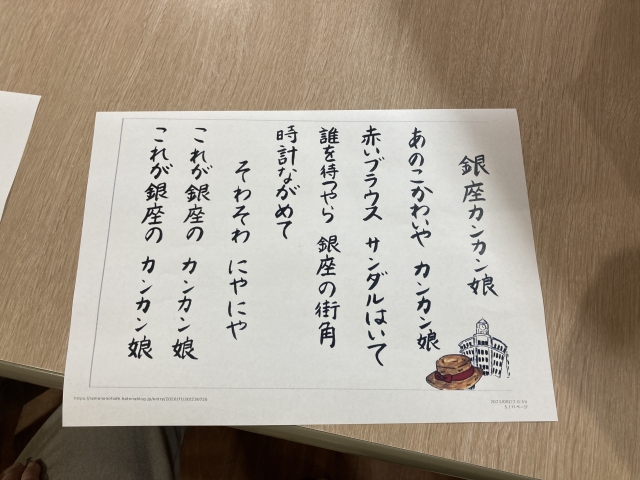 銀座カンカン娘
あのこかわいや カンカン娘
赤いブラウス サンダルはいて
誰を待つやら 銀座の街角
時計ながめて
そわそわ にやにや
これが銀座の カンカン娘
これが銀座の カンカン娘